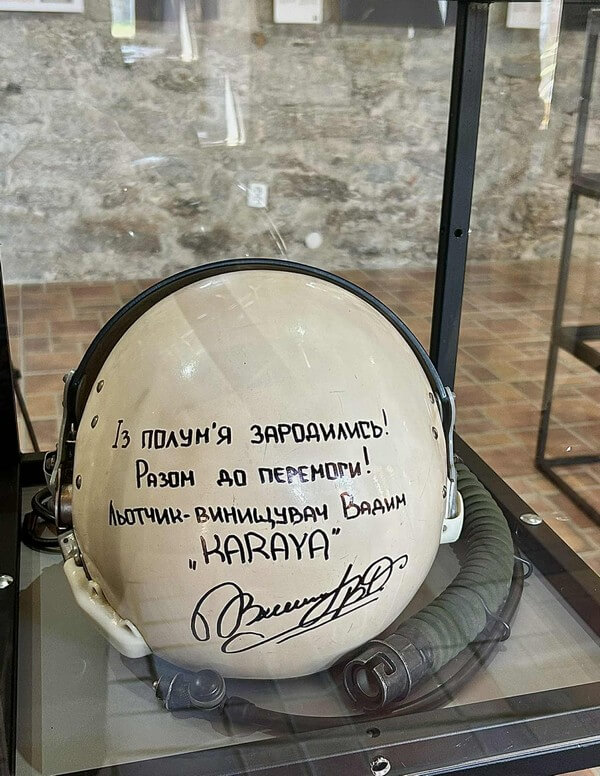 Із полум'я зародились!
Разом до перемоги!
Льотчик-винищувач Вадим
„KARAYA"